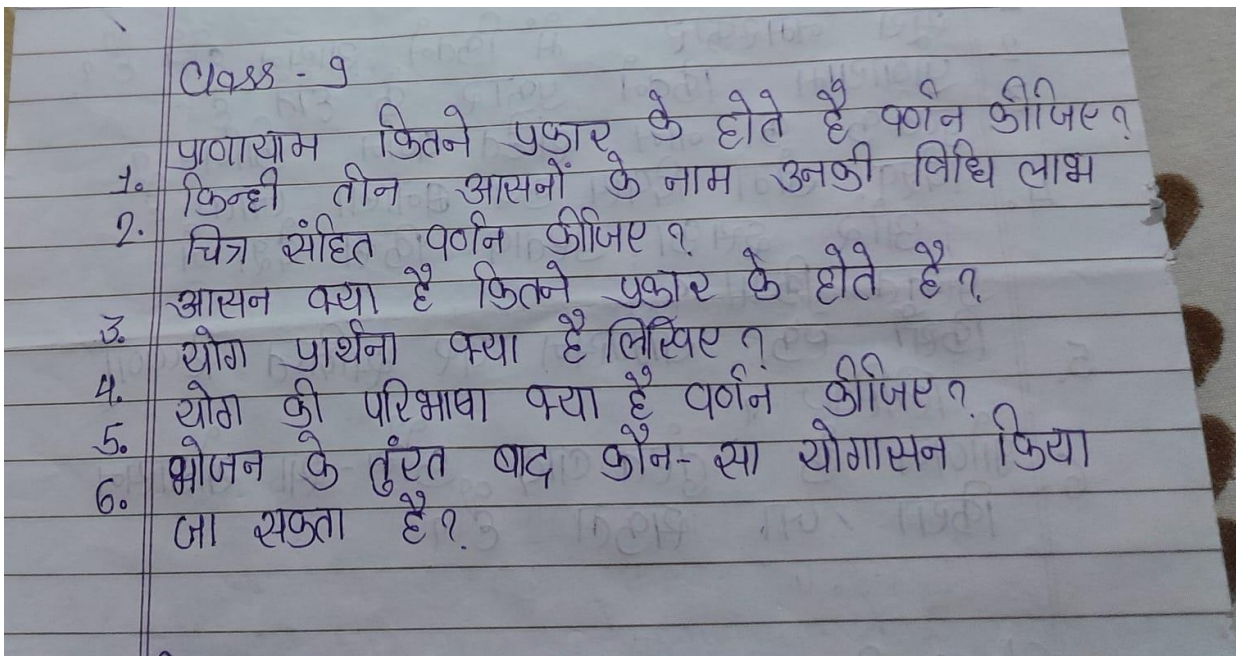 Class - 9
1. प्राणायाम कितने प्रकार के होते है वर्णन कीजिए?
2. किन्ही तीन आसनों के नाम उनकी विधि लाभ
चित्र संहित वर्णन कीजिए?
3. आसन क्या है कितने प्रकार के होते है?
4. योग प्रार्थना क्या है लिखिए?
5. योग की परिभाषा क्या है वर्णन कीजिए?
6. भोजन के तुंरत बाद कौन-सा योगासन किया
जा सकता है?